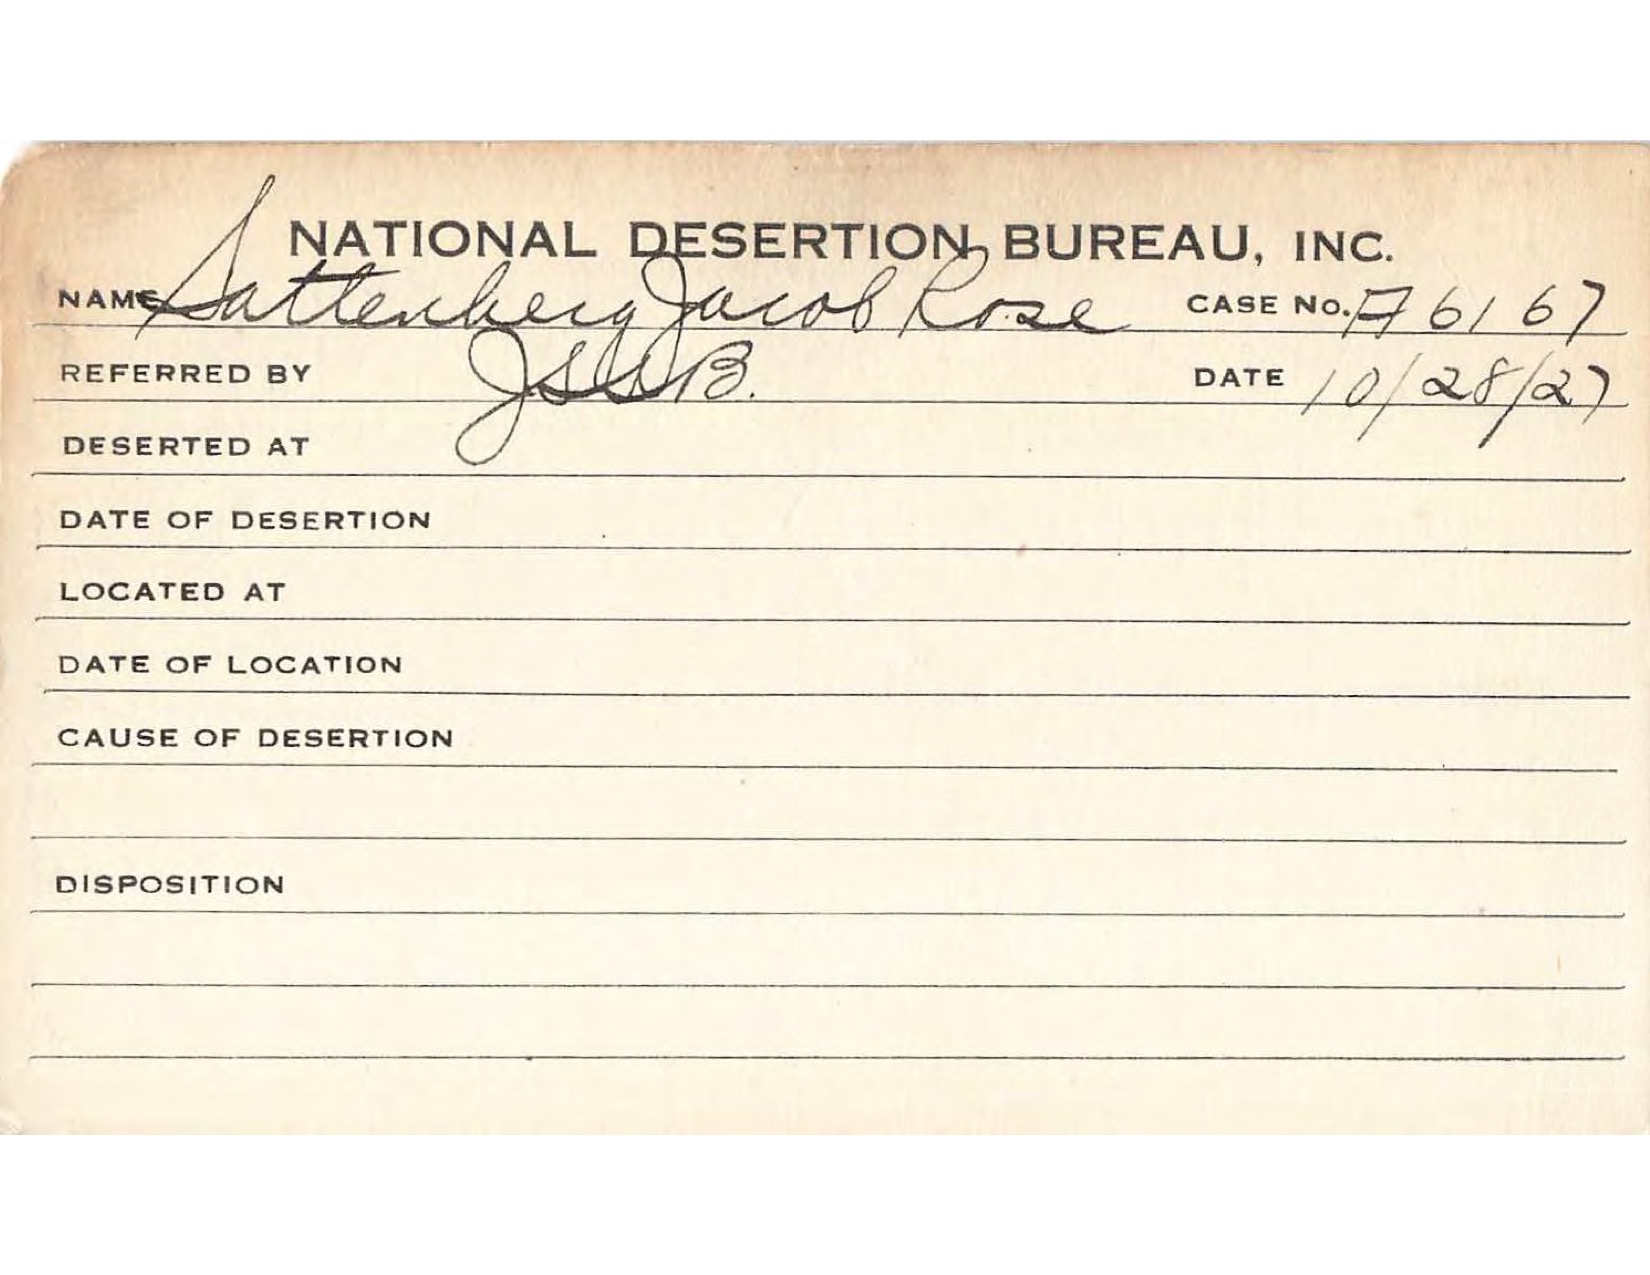 NATIONAL DESERTION BUREAU, INC.
NAME Sattenberg Jacob Rose CASE No. A6167
REFERRED BY JSSB. DATE 10/28/27
DESERTED AT
DATE OF DESERTION
LOCATED AT
DATE OF LOCATION
CAUSE OF DESERTION
DISPOSITION